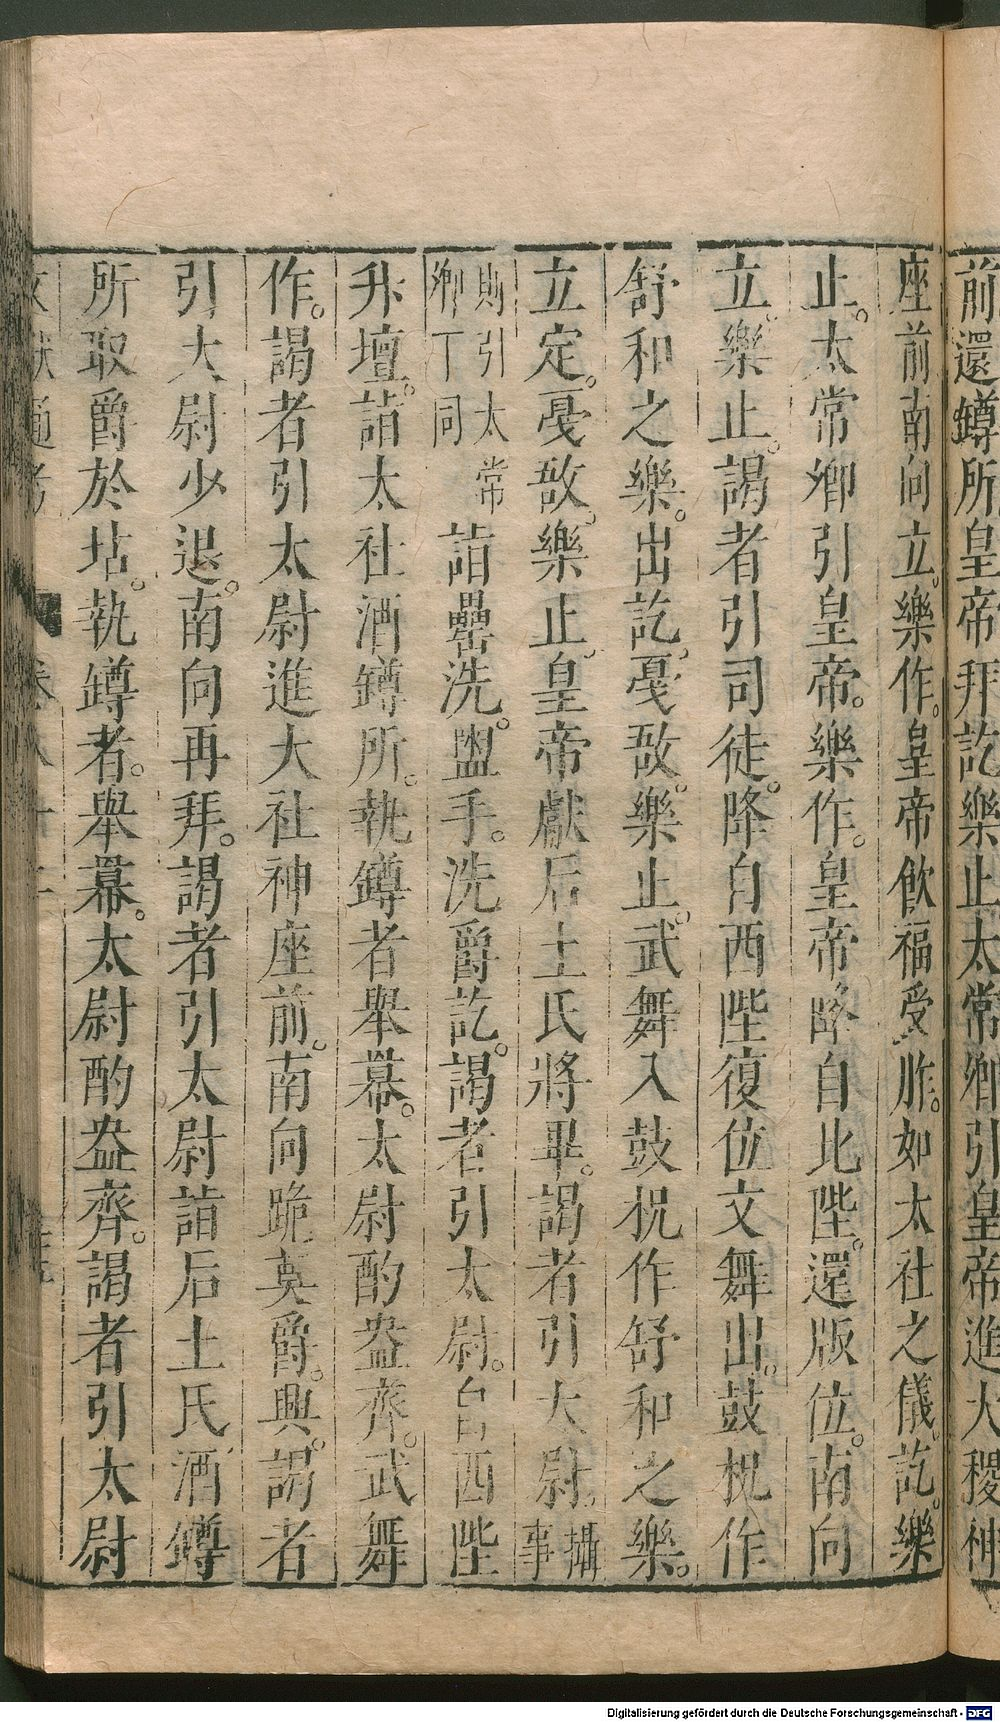 前還罇所皇帝拜訖樂止太常卿引皇帝進大稷神
座前南向立樂作。皇帝飲福受胙。如太社之儀訖。樂
止。太常卿引皇帝。樂作。皇帝降自北陛。還版位。南向
立。樂止。謁者引司徒。降自西陛復位文舞出。鼓柷作
舒和之樂。出訖。戛敔。樂止。武舞入鼓柷作舒和之樂。
立定。戛敔。樂止。皇帝獻后土氏將畢。謁者引太尉。攝事
則引太常卿丁同詣罍洗。盥手。洗爵訖。謁者引太尉。自西陛
升壇。詣太社酒罇所。執罇者舉冪。太尉酌盎齊。武舞
作。謁者引太尉進大社神座前。南向跪奠爵。興。謁者
引大尉少退。南向再拜。謁者引太尉詣后土氏酒罇
所取爵於坫。執罇者。舉冪。太尉酌盎齊。謁者引太尉
Digitalisierung gefördert durch die Deutsche Forschungsgemeinschaft - DFG